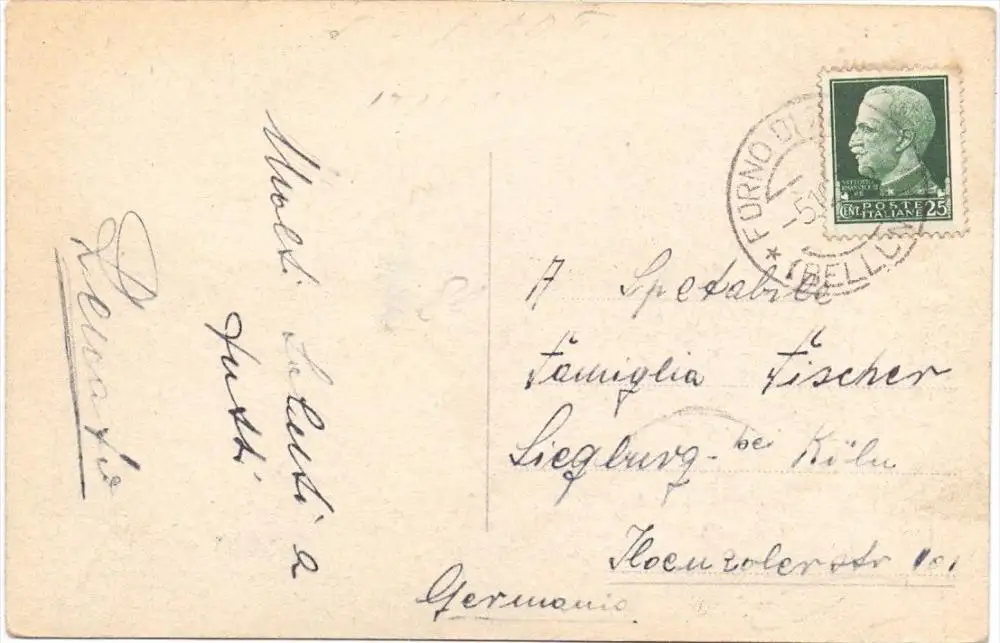 Molti Saluti a
tutti
FORNO DI
-5
(BELLUNO
VITTORIO
EMANUELE III
CENT. POSTE 25
ITALIANE
A Spetabile
Famiglia Fischer
Siegburg - bei Köln
Hoenzolerstr 101
Germania